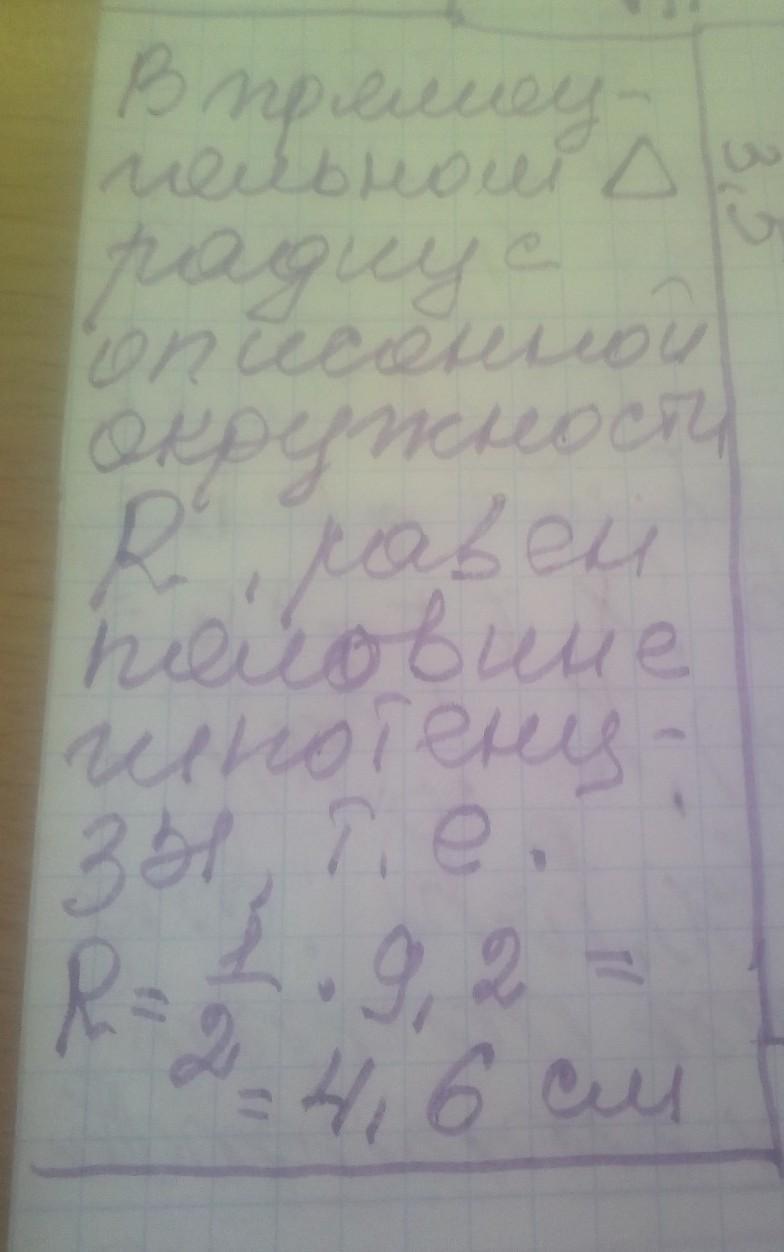 В прямоу-
гольном △
радиус
описанной
окружности
R, равен
половине
гипотену-
зы, т. е.
R = 1/2 · 9,2 =
= 4,6 см
3,5